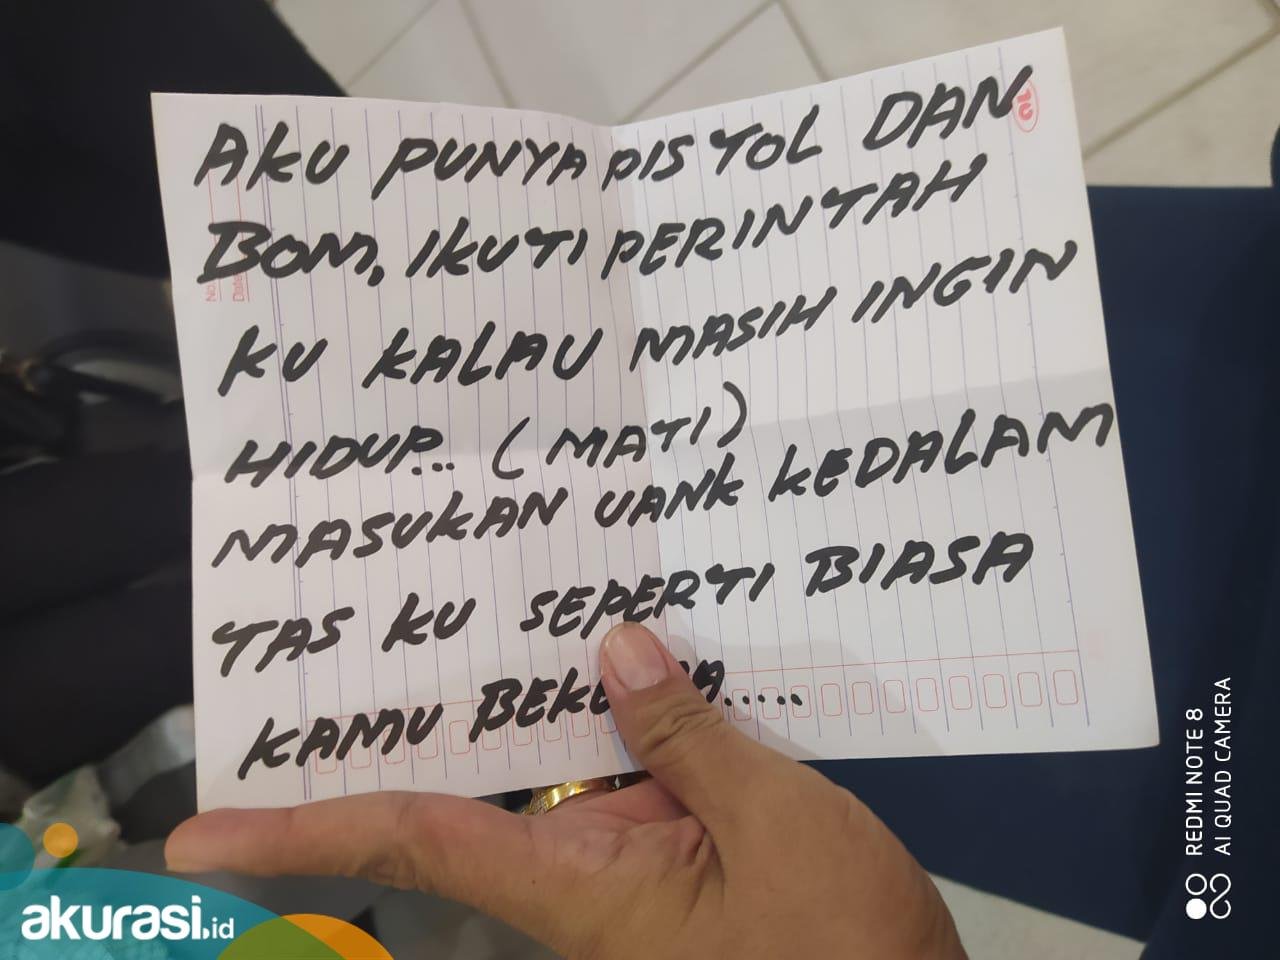 AKU PUNYA PISTOL DAN
BOM, IKUTI PERINTAH
KU KALAU MASIH INGIN
HIDUP... (MATI)
MASUKAN UANK KEDALAM
TAS KU SEPERTI BIASA
KAMU
No.
Date
akurasi.id
REDMI NOTE 8
AI QUAD CAMERA